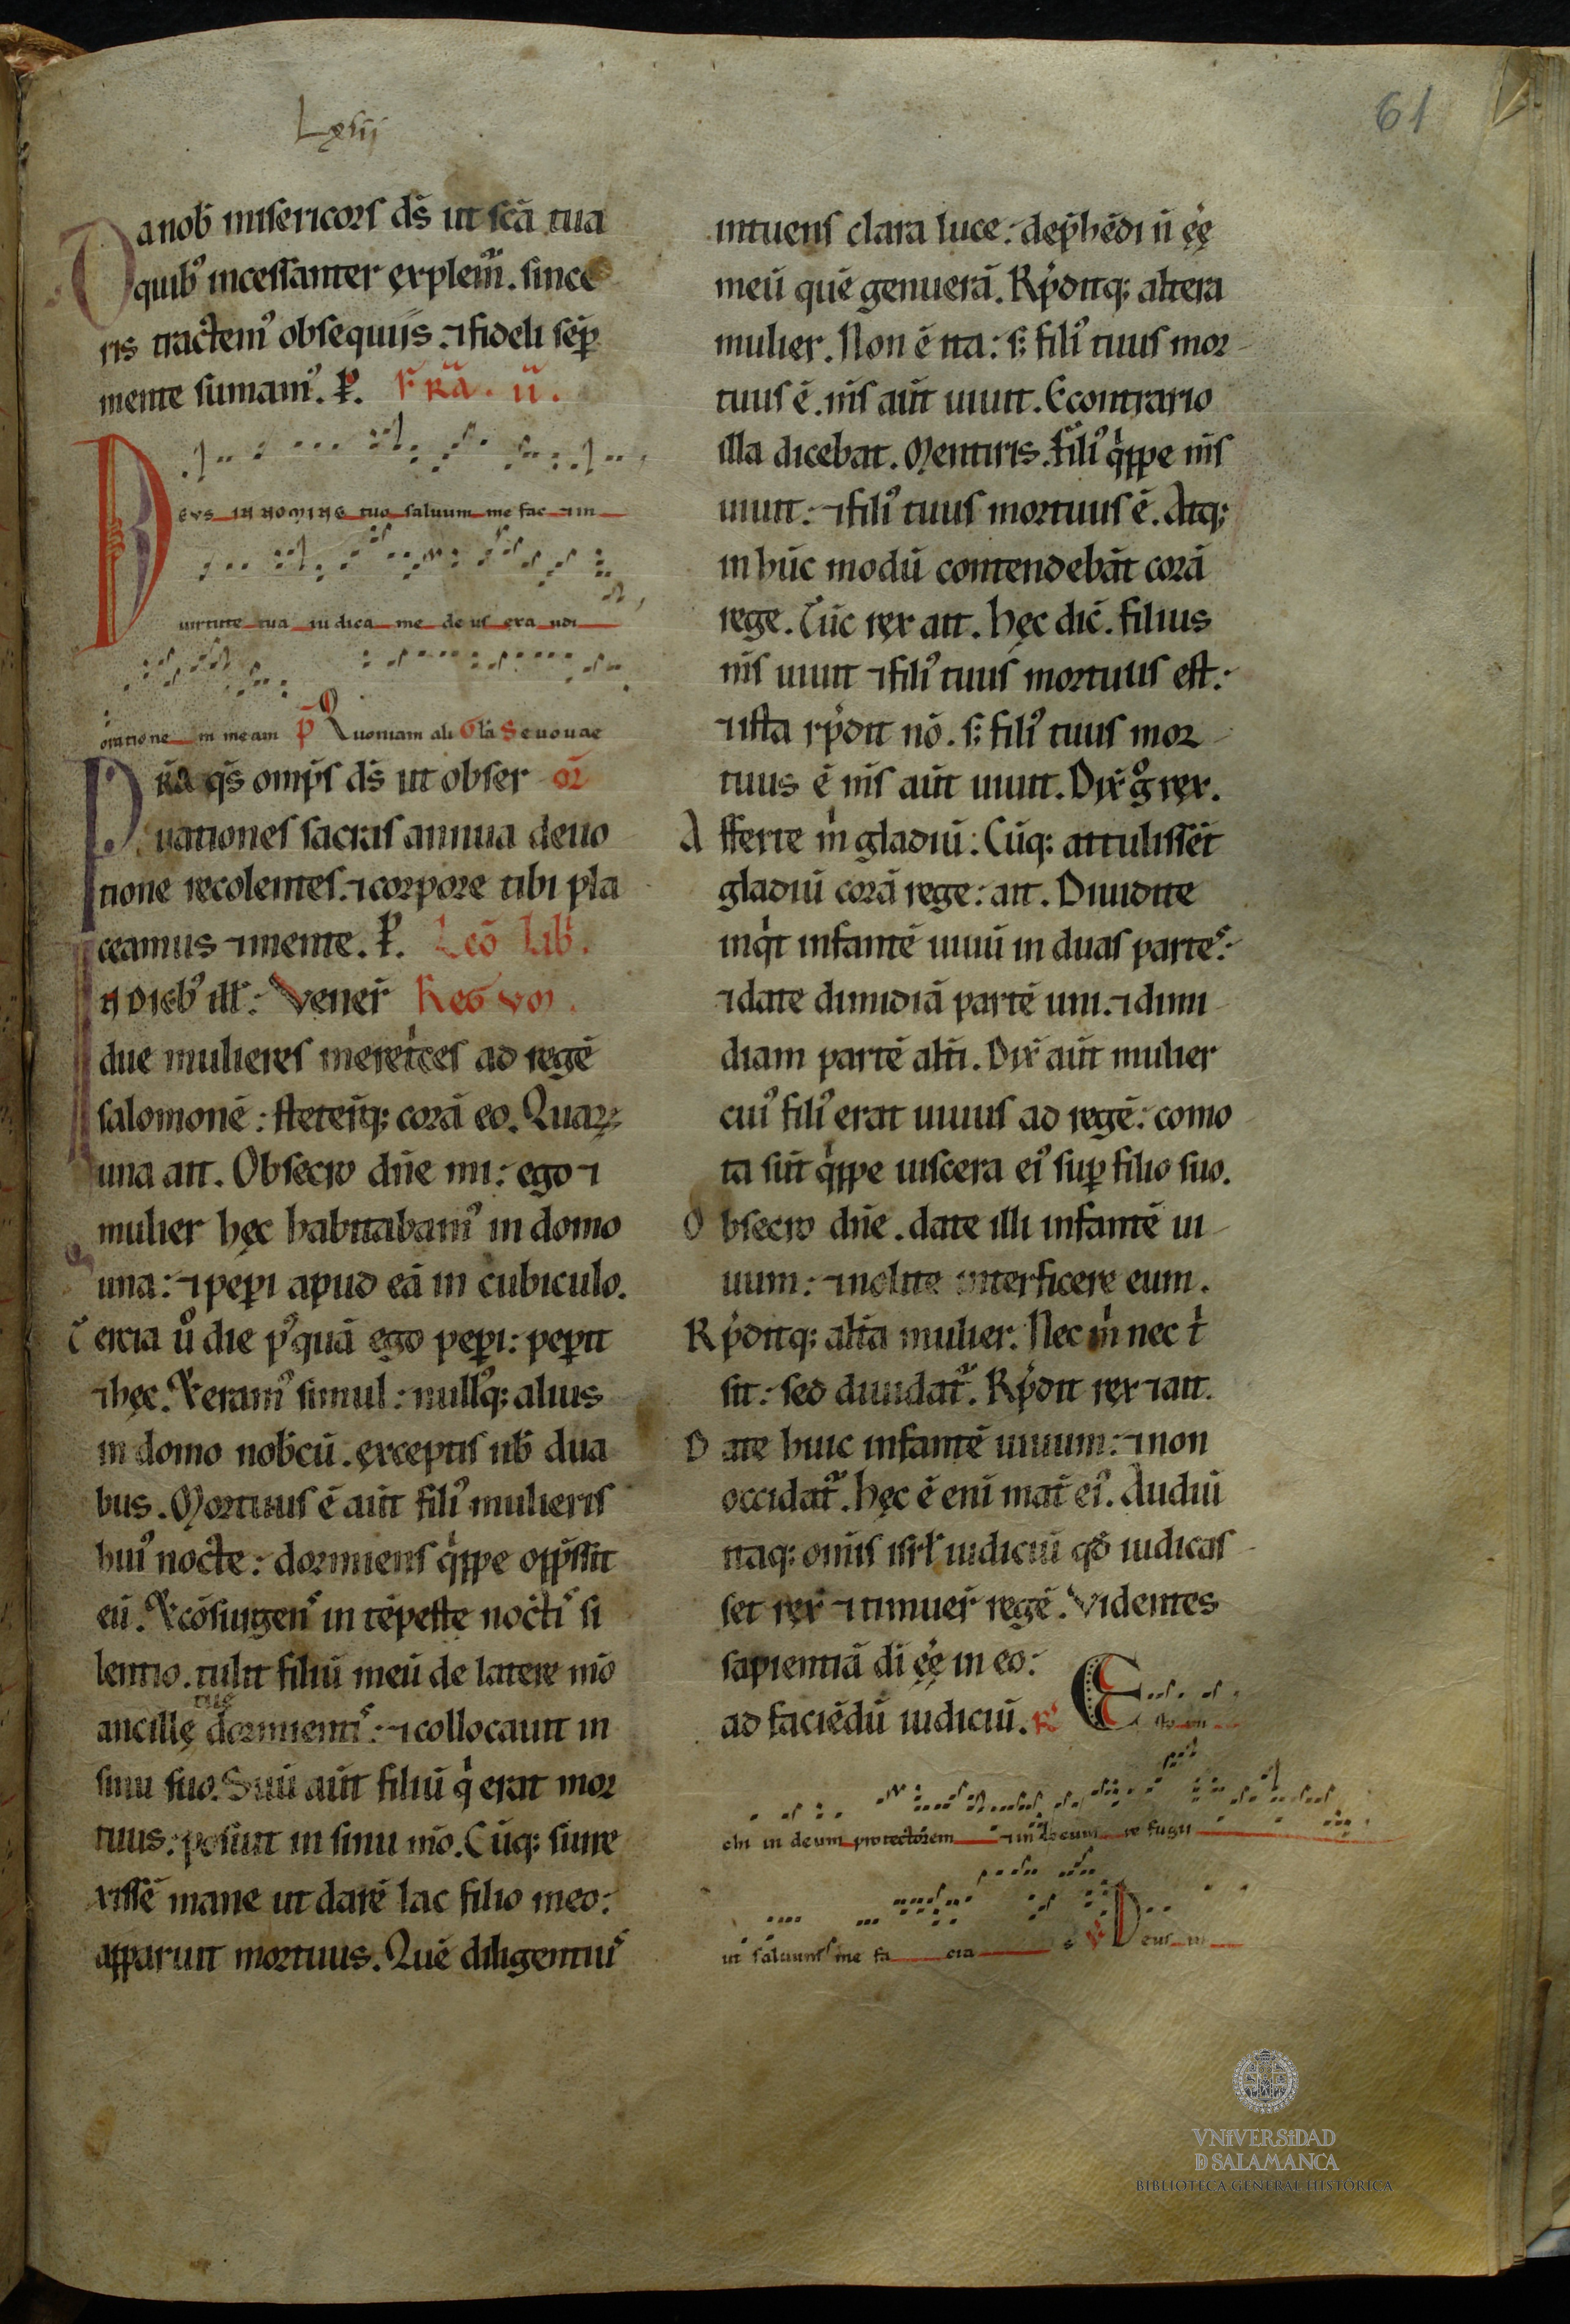 Lxiii
61
Da nob̄ misericors ds̄ ut sc̄a tua
quib᷒ incessanter ęxplem̄. since
ris tractem᷒ obsequiis. ⁊ fideli sēp
mente sumam᷒. P̄. F̄R̄A. II.
DEVS IN NOMINE tuo saluum me fac ⁊ in
uirtute tua iu dica me de us exa udi
oratione m meam P̄ Quoniam ali Gl̄a Seuouae
P R̄A qs̄ omp̄s ds̄ ut obser OR̄
uationes sacras annua deuo
tione recolentes. ⁊ corpore tibi pla
ceamus ⁊ mente. P̄. Lec̄o Lib̄.
IN DIEB᷒ ill̄: Vener̄ Reḡ
due mulieres meret͛ces ad regē
salomonē: steter̄q; corā eo. Quaꝝ
una ait. Obsecro dn̄e mi: ego ⁊
mulier hęc habitabam᷒ in domo
una: ⁊ peꝑi apud eā in cubiculo.
Tercia ů die p᷒quā ego peꝑi: peꝑit
⁊ hęc. Et eram᷒ simul: null᷒q; alius
in domo nob̄cū. ęxceptis nb̄ dua
bus. Mortuus ē aūt fili᷒ mulieris
hui᷒ nocte: dormiens q͛ppe opp̄ssit
eū. Et cōsurgens in tēpestę noct̄is si
lentio. tulit filiū meū de latere mō
tuę
ancillę dormientis: ⁊ collocauit in
sinu suo. Suū aūt filiū q͛ erat mor
tuus: posuit in sinu mō. Cūq; surre
xissē mane ut darē lac filio meo:
apparuit mortuus. Quē diligentius
intuens clara luce: dep̄hēdi n̄ ęę͛
meū quē genuerā. Rp̄ditq; altera
mulier. Non ē ita: s; fili᷒ tuus mor
tuus ē. m̄s aūt uiuit. Econtrario
illa dicebat. Mentiris. fili᷒ q͛ppe m̄s
uiuit: ⁊ fili᷒ tuus mortuus ē. Atq;
in hūc modū contendebāt corā
rege. Tūc ręx ait. Hęc dic̄. filius
m̄s uiuit ⁊ fili᷒ tuus mortuus est:
⁊ ista rp̄dit nō. s; fili᷒ tuus mor
tuus ē m̄s aūt uiuit. Dix̄ g̊ ręx.
Afferte m͛ gladiū: Cūq; attulissēt
gladiū corā rege: ait. Diuidite
inq͛t infantē uiuū in duas partes:
⁊ date dimidiā partē uni. ⁊ dimi
diam partē alt̄i. Dix̄ aūt mulier
cui᷒ fili᷒ erat uiuus ad regē: como
ta sūt q͛ppe uiscera ei᷒ suꝑ filio suo.
Obsecro dn̄e. date illi infantē ui
uum: ⁊ nolite interficere eum.
Rp̄ditq; alt̄a mulier. Nec m͛ nec t͛
sit: sed diuidat̄. Rp̄dit ręx ⁊ ait.
Date huic infantē uiuum: ⁊ non
occidat̄. hęc ē eni mat̄ ei᷒. Audiui
itaq; omīs isrl̄ iudiciū qd̄ iudicas
set ręx̄ ⁊ timuer̄ regē. Videntes
sapientiā di ęę͛ in eo:
ad faciēdū iudiciū. R̄ E sto mi
chi in deum protectorem ⁊ in locum re fugii
ut saluum me fa cia s V̄ Deus in
VNiVERSiDAD
D SALAMANCA
BIBLIOTECA GENERAL HISTÓRICA